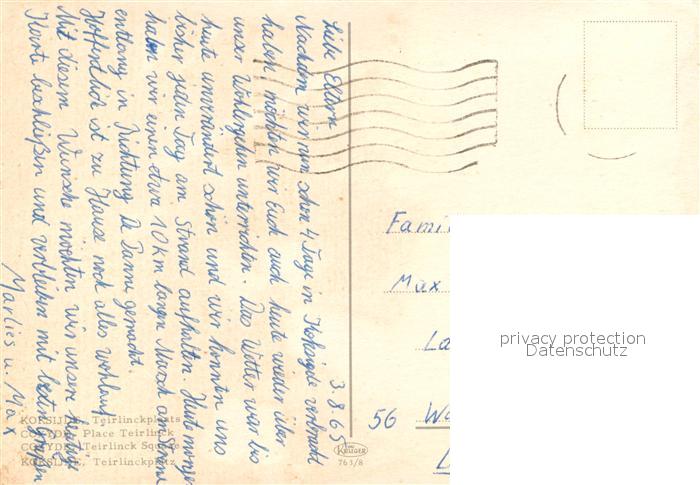 3.8.65
Liebe Eltern
Nachdem wir nun schon 4 Tage in Koksijde verbracht
haben, möchten wir Euch auch heute wieder über
unser Wohlergehen unterrichten. Das Wetter war bis
heute unverändert schön und wir konnten uns
bisher jeden Tag am Strand aufhalten. Heute morgen
haben wir einen etwa 10 km langen Marsch am Strand
entlang in Richtung De Panne gemacht.
Hoffentlich ist zu Hause noch alles wohlauf.
Mit diesem Wunsche möchten wir unsere heutige
Karte beschließen und verbleiben mit besten Grüßen
Marlies u. Max
Famil
Max
La
56 Wu
KOKSIJDE, Teirlinckplaats
COXYDE, Place Teirlinck
COXYDE, Teirlinck Square
KOKSIJDE, Teirlinckplatz
KRÜGER
763/8
privacy protection
Datenschutz